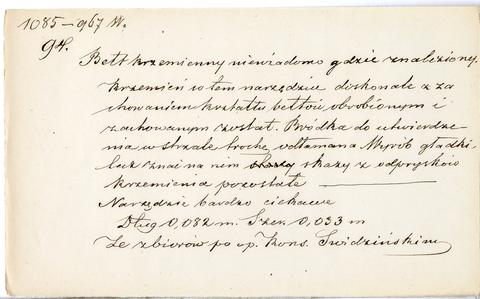 1085 – 967 W.
94.
Bełt krzemienny niewiadomo gdzie znaleziony.
Krzemień w tem narzędziu doskonale z za
chowaniem kształtu bełtów obrobionym i
zachowanym został. Bródka do utwierdze
nia w strzale trochę odłamana Wyrób gładki
lecz znać na nim skazy z odprysków
krzemienia pozostałe
Narzędzie bardzo ciekawe
Dług 0,082 m. Szer. 0,033 m
Ze zbiorów po śp. Kons. Swidzińskim